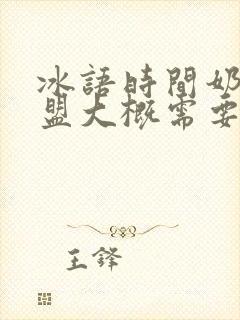 冰語時間奶
盟大概需要
王鋒